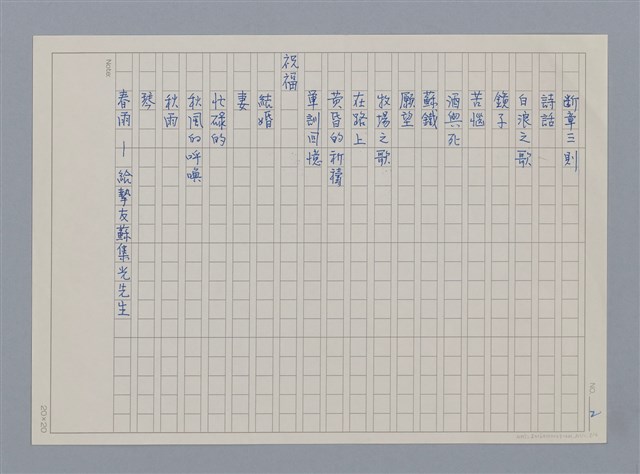 斷章三則
詩話
白浪之歌
鏡子
苦惱
酒與死
蘇鐵
願望
牧場之歌
在路上
黃昏的祈禱
軍訓回憶
祝福
結婚
妻
忙碌的
秋風的呼喚
秋雨
琴
春雨—給摯友蘇集光先生
Note:
NO. 2
20×20